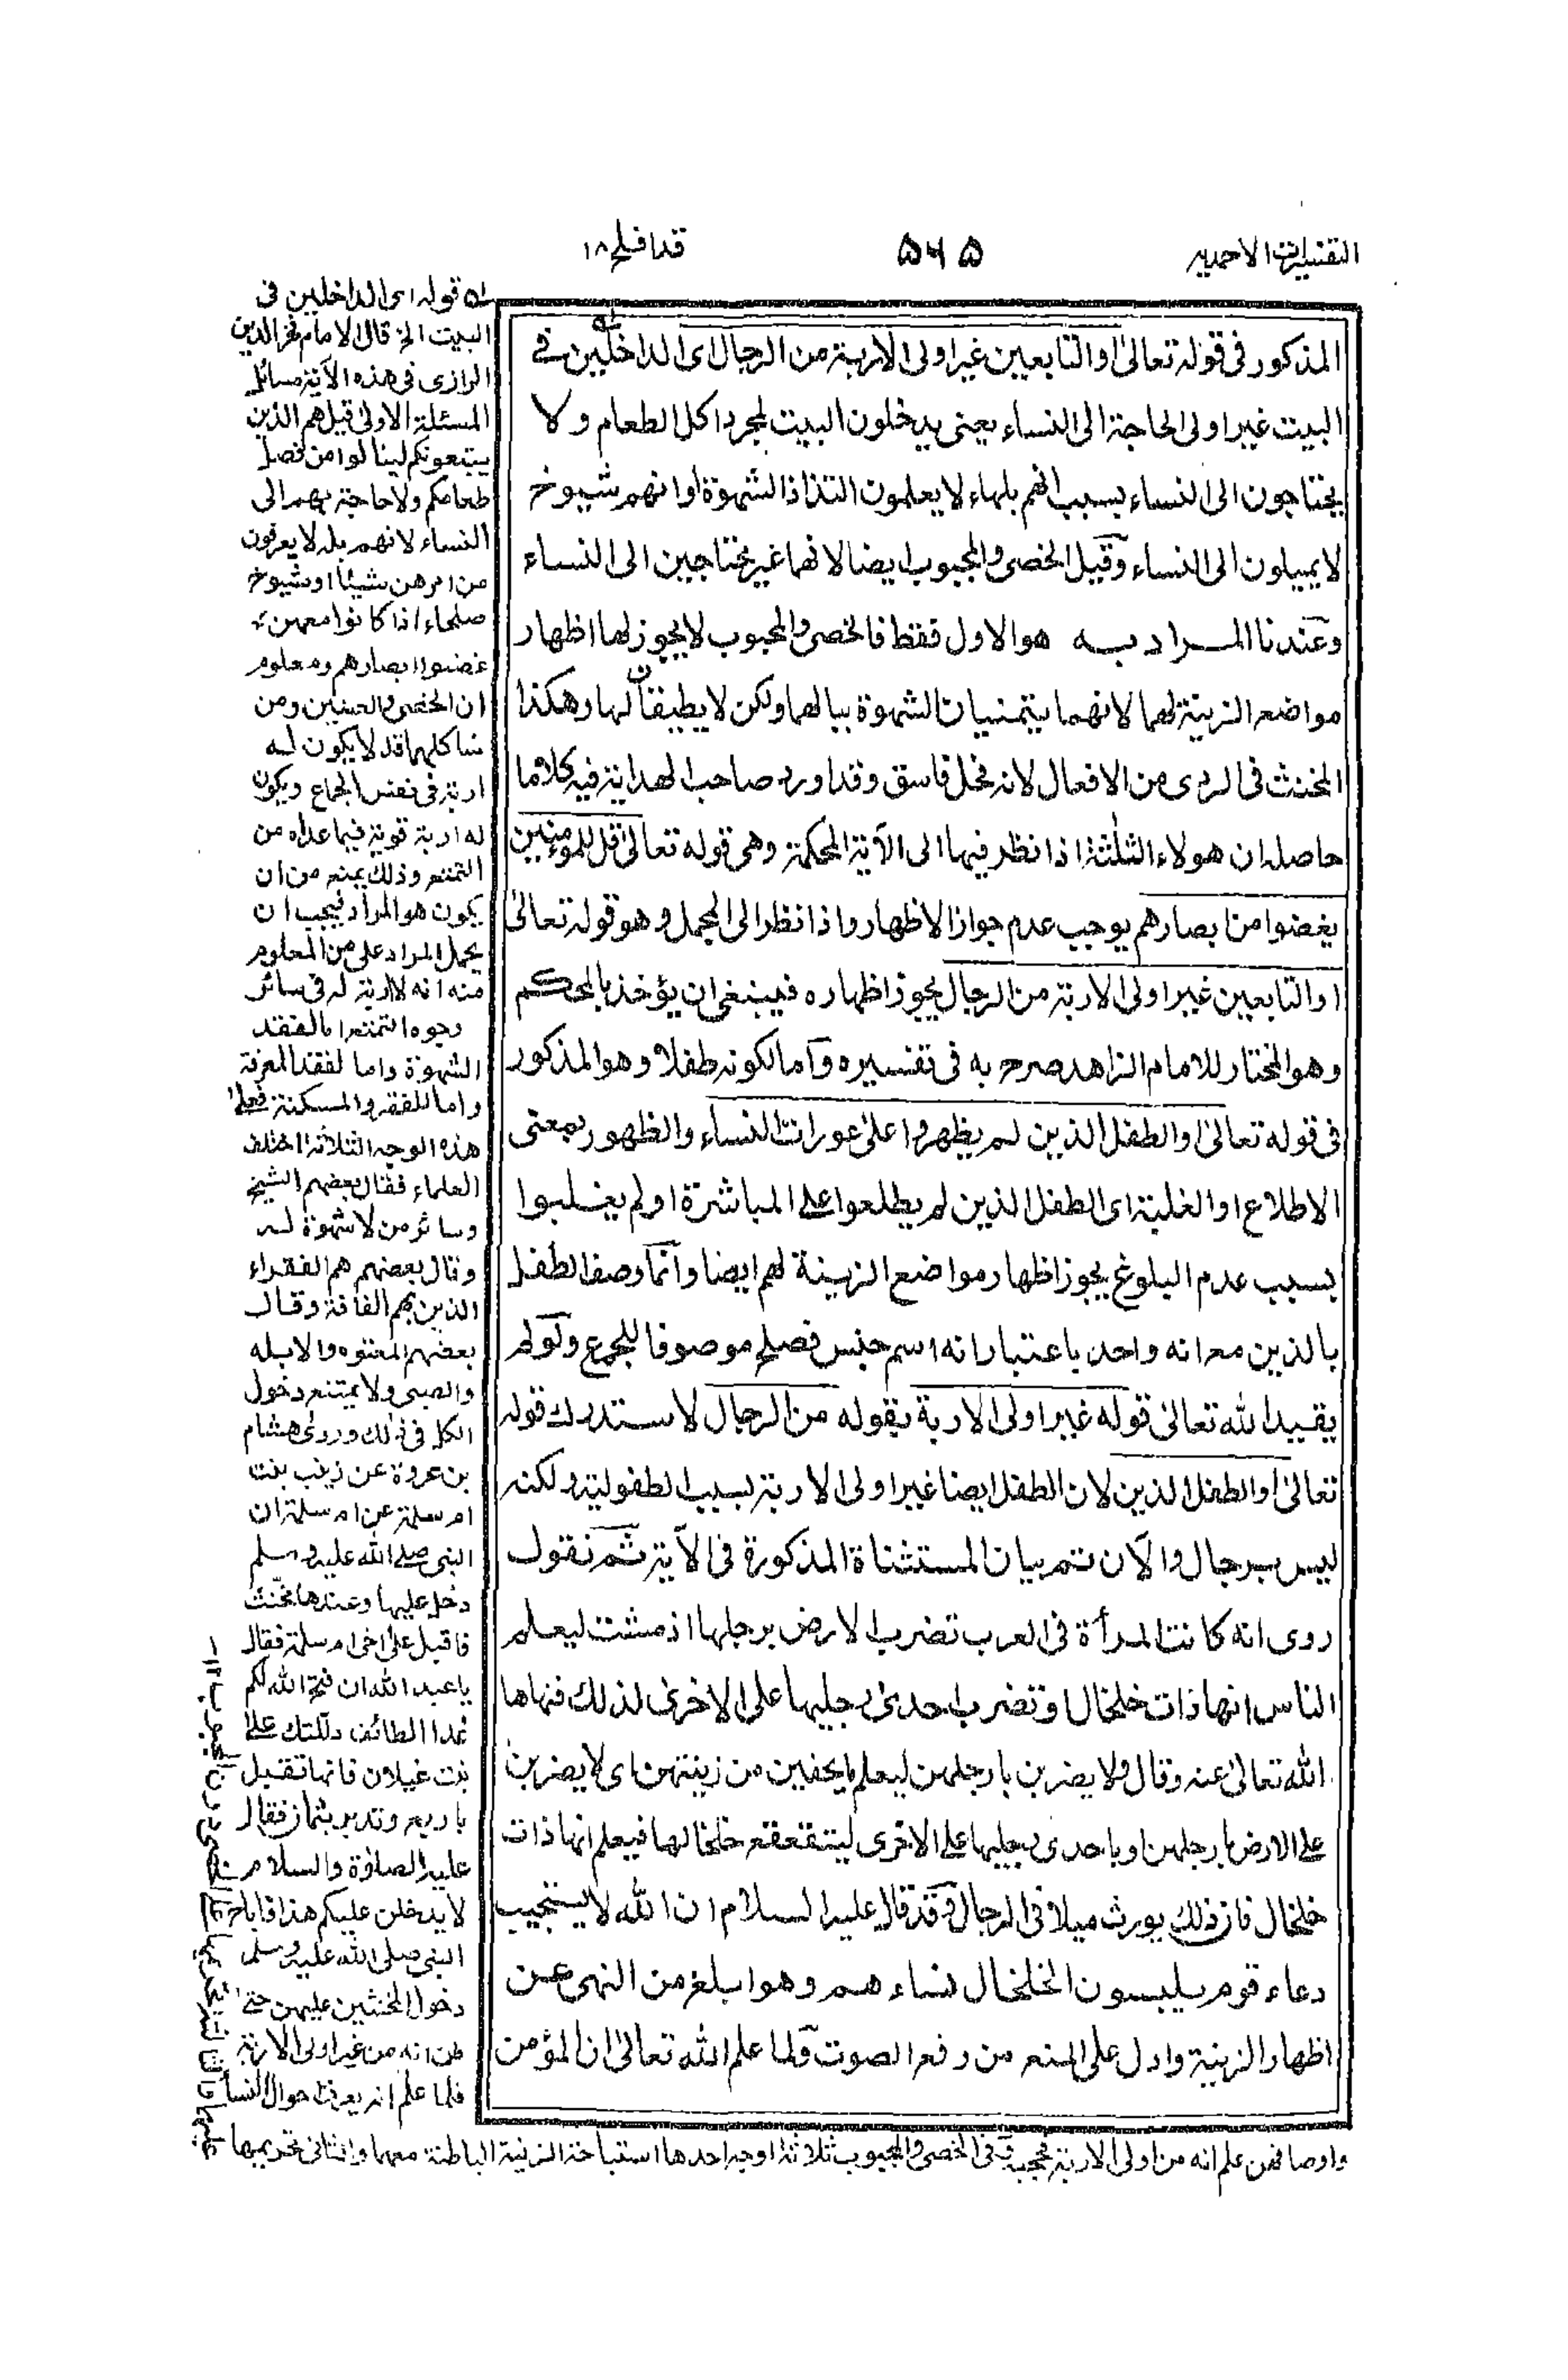 التفسيرات الاحمديه
۵۶۵
قد افلح ۱۸
المذكور فى قوله تعالىٰ او التابعين غير اولى الاربة من الرجال اى الداخلين فے
البيت غير اولى الحاجة الى النساء يعنى يدخلون البيت لمجرد اكل الطعام و لا
يحتاجون الى النساء بسبب انهم بلهاء لا يعلمون التذاذ الشهوة او انهم شيوخ
لا يميلون الى النساء وقيل الخصى والمجبوب ايضا لانهما غير محتاجين الى النساء
وعندنا المراد به هو الاول فقط فالخصى والمجبوب لا يجوز لها اظهار
مواضع الزينة لهما لانهما يتمنيان الشهوة ببالهما ولكن لا يطيقان لها وهكذا
المخنث فى الردى من الافعال لانه فحل فاسق وقد اورد صاحب الهداية فيه كلاما
حاصله ان هولاء الثلٰثة اذا نظر فيها الى الآية المحكمة وهى قوله تعالىٰ قل للمؤمنين
يغضوا من ابصارهم يوجب عدم جواز الاظهار واذا نظر الى المجمل و هو قوله تعالىٰ
او التابعين غير اولى الاربة من الرجال يجوز اظهاره فينبغى ان يؤخذ بالمحكم
وهو المختار للامام الزاهد صرح به فى تفسيره وآما لكونه طفلا وهو المذكور
فى قوله تعالىٰ او الطفل الذين لم يظهروا علىٰ عورات النساء والظهور بمعنى
الاطلاع او الغلبة اى الطفل الذين لم يطلعوا على المباشرة او لم يغلبوا
بسبب عدم البلوغ يجوز اظهار مواضع الزينة لهم ايضا وآنما وصف الطفل
بالذين مع انه واحد باعتبار انه اسم جنس فصلح موصوفا للجمع ولو لم
يقيد الله تعالىٰ قوله غير اولى الاربة بقوله من الرجال لاستدرك قوله
تعالىٰ او الطفل الذين لان الطفل ايضا غير اولى الاربة بسبب الطفولية ولكنه
ليس برجال والآن تم بيان المستثناة المذكورة فى الآية ثم نقول
روى انه كانت المرأة فى العرب تضرب الارض برجلها اذ مشت ليعلم
الناس انها ذات خلخال او تضرب احدىٰ رجليها على الاخرىٰ لذلك فنهاها
الله تعالىٰ عنه وقال ولا يضربن بارجلهن ليعلم ما يخفين من زينتهن اى لا يضربن
على الارض بارجلهن او باحدى رجليها على الاخرى ليتقعقع خلخالها فيعلم انها ذات
خلخال فان ذلك يورث ميلا فى الرجال وقد قال عليه السلام ان الله لا يستجيب
دعاء قوم يلبسون الخلخال نساءهم وهو ابلغ من النهى عن
اظهار الزينة وادل على المنع من رفع الصوت ولما علم الله تعالىٰ ان المؤمن
قوله اى الداخلين فى
البيت الخ قال الامام فخر الدين
الرازى فى هذه الآية مسائل
المسئلة الاولىٰ قيل هم الذين
يتبعونكم لينالوا من فضل
طعامكم ولا حاجة بهم الى
النساء لانهم بله لا يعرفون
من امرهن شيئا او شيوخ
صلحاء اذا كانوا معهن
غضوا ابصارهم ومعلوم
ان الخصى والعنين ومن
شاكلهما قد لا يكون له
اربة فى نفس الجماع ويكون
له اربة قوية فيما عداه من
التمتع وذلك يمنع من ان
يكون هو المراد فيجب ان
يحمل المراد على من المعلوم
منه انه لا اربة له فى سائر
وجوه التمتع اما لفقد
الشهوة واما لفقد المعرفة
واما للفقر والمسكنة فعلى
هذه الوجه الثلاثة اختلف
العلماء فقال بعضهم الشيخ
وسائر من لا شهوة له
وقال بعضهم هم الفقراء
الذين بهم الفاقة وقال
بعضهم المعتوه والابله
والصبى ولا يمتنع دخول
الكل فى ذلك وروى هشام
بن عروة عن زينب بنت
ام سلمة عن ام سلمة ان
النبى صلى الله عليه وسلم
دخل عليها وعندها مخنث
فاقبل علىٰ اخى ام سلمة فقال
يا عبد الله ان فتح الله لكم
غدا الطائف دللتك على
بنت غيلان فانها تقبل
باربع وتدبر بثمان فقال
عليه الصلوٰة والسلام
لا يدخلن عليكم هذا فاباح
النبى صلى الله عليه وسلم
دخول المخنثين عليهن حتى
ظن انه من غير اولى الاربة
فلما علم انه يعرف احوال النساء
واوصافهن علم انه من اولى الاربة فحجبه وفى الخصى والمجبوب ثلاثة اوجه احدها استباحة الزينة الباطنة معهما والثانى تحريمها